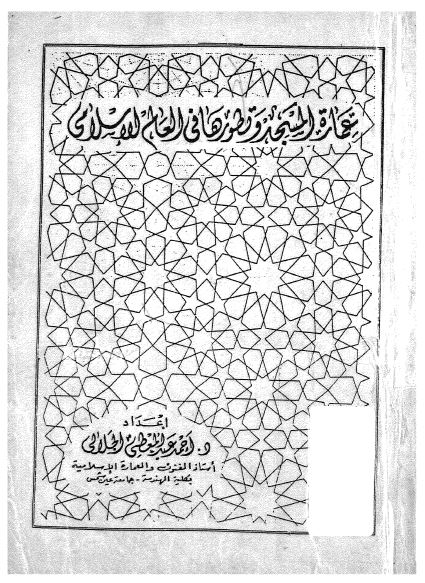 عمارة المسجد وتطورها فى العالم الإسلامى
إعداد
د. أحمد عبد المعطى الجلالى
أستاذ الفنون والعمارة الإسلامية
بكلية الهندسة - جامعة عين شمس